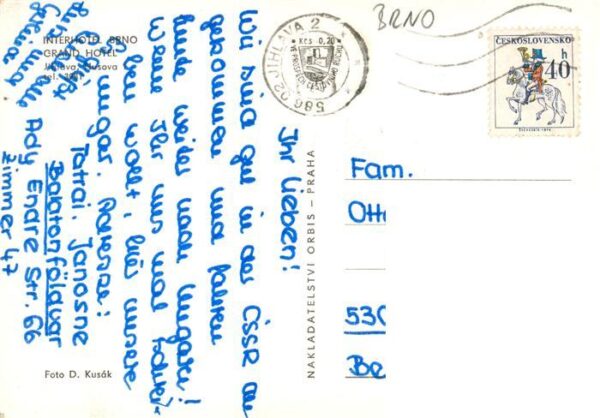 INTERHOTEL BRNO
GRAND HOTEL
Jihlava, Husova
tel.
Ihr Lieben!
Wir sind gut in der ČSSR an
gekommen und fahren
heute weiter nach Ungarn!
Wenn Ihr uns mal schrei-
ben wollt, hier unsere
ungar. Adresse:
Tatrai, Janosne
Balatonföldvar
Ady Endre Str. 66
Zimmer 47
Foto D. Kusák
NAKLADATELSTVÍ ORBIS – PRAHA
586 02 JIHLAVA 2
Kčs 0,20
BRNO
ČESKOSLOVENSKO
40 h
Fam.
Otto
530
Be